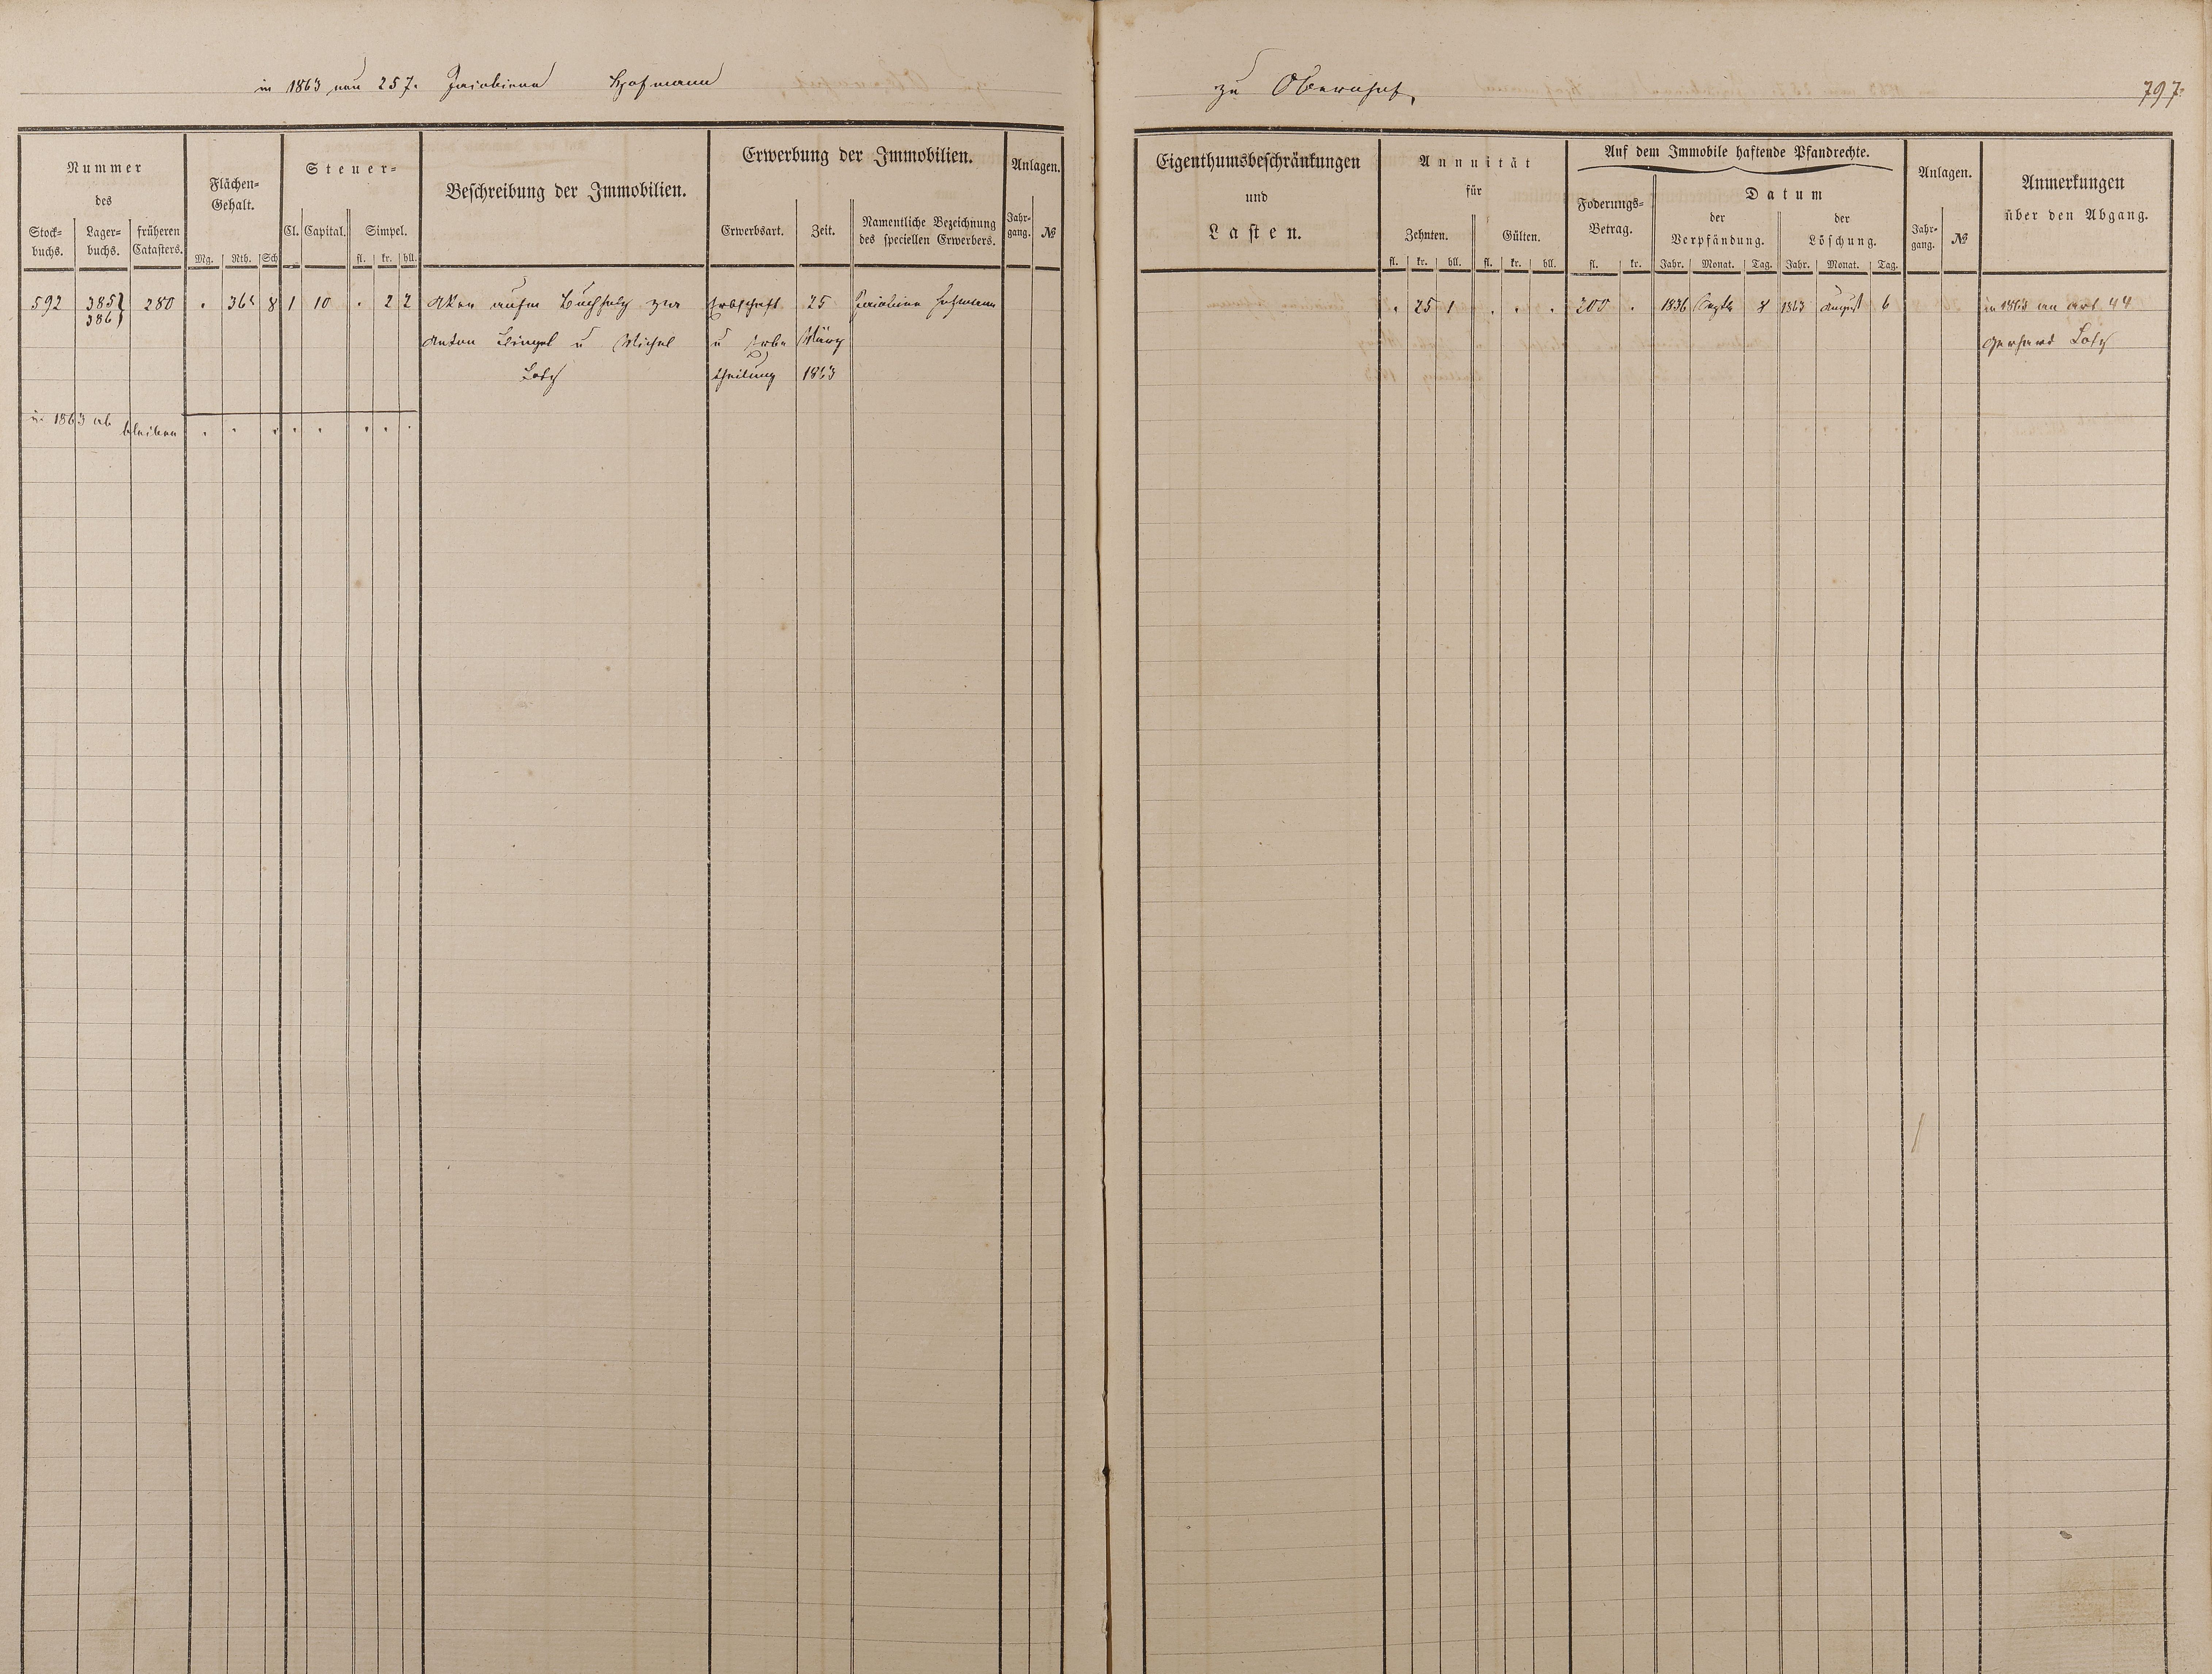 in 1863 von 257. Jacobiena Hofmann
zu Obernhof,
797.
Nummer
des
Stock-
buchs.
Lager-
buchs.
früheren
Catasters.
Flächen-
Gehalt.
Mg. Rth. Sch
Steuer-
Cl. Capital. Simpel.
fl. kr. hll.
Beschreibung der Immobilien.
Erwerbung der Immobilien.
Erwerbsart. Zeit.
Namentliche Bezeichnung
des speciellen Erwerbers.
Anlagen.
Jahr-
gang. №
Eigenthumsbeschränkungen
und
Lasten.
Annuität
für
Zehnten. Gülten.
fl. kr. hll. fl. kr. hll.
Auf dem Immobile haftende Pfandrechte.
Foderungs-
Betrag.
fl. kr.
Datum
der
Verpfändung.
der
Löschung.
Jahr. Monat. Tag. Jahr. Monat. Tag.
Anlagen.
Jahr-
gang. №
Anmerkungen
über den Abgang.
592 385 280 . 36 8 1 10 . 2 2 Acker aufm Buchholz zw Erbschaft 25 Jacobine Hofmann . 25 1 . . . 200 . 1836 Septb 8 1863 August 6 in 1863 an Art. 44
386
Anton u Michel u Erb März Gerhard Losch
Losch theilung 1863
in 1863 ab
bleiben . . . . . . . .